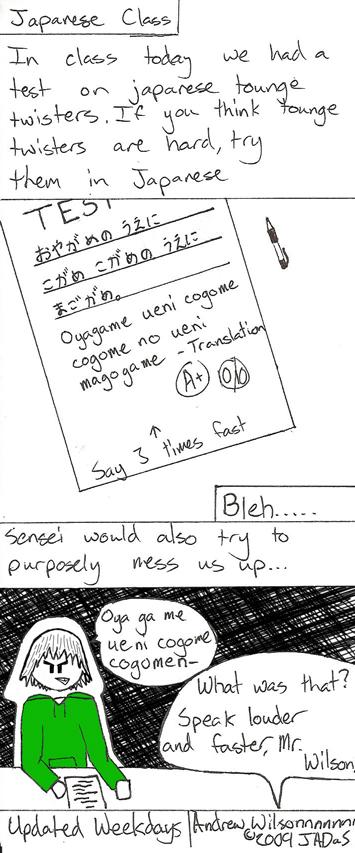 Japanese Class
In class today we had a
test on japanese tounge
twisters. If you think tounge
twisters are hard, try
them in Japanese
TEST
おやがめの うえに
こがめ こがめの うえに
まごがめ。
Oyagame ueni cogome
cogome no ueni
magogame - Translation
A+
Say 3 times fast
Bleh.....
Sensei would also try to
purposely mess us up...
Oya ga me
ueni cogome
cogomen-
What was that?
Speak louder
and faster, Mr.
Wilson
Updated Weekdays
Andrew Wilsonnnnnnn
©2009 JADaS